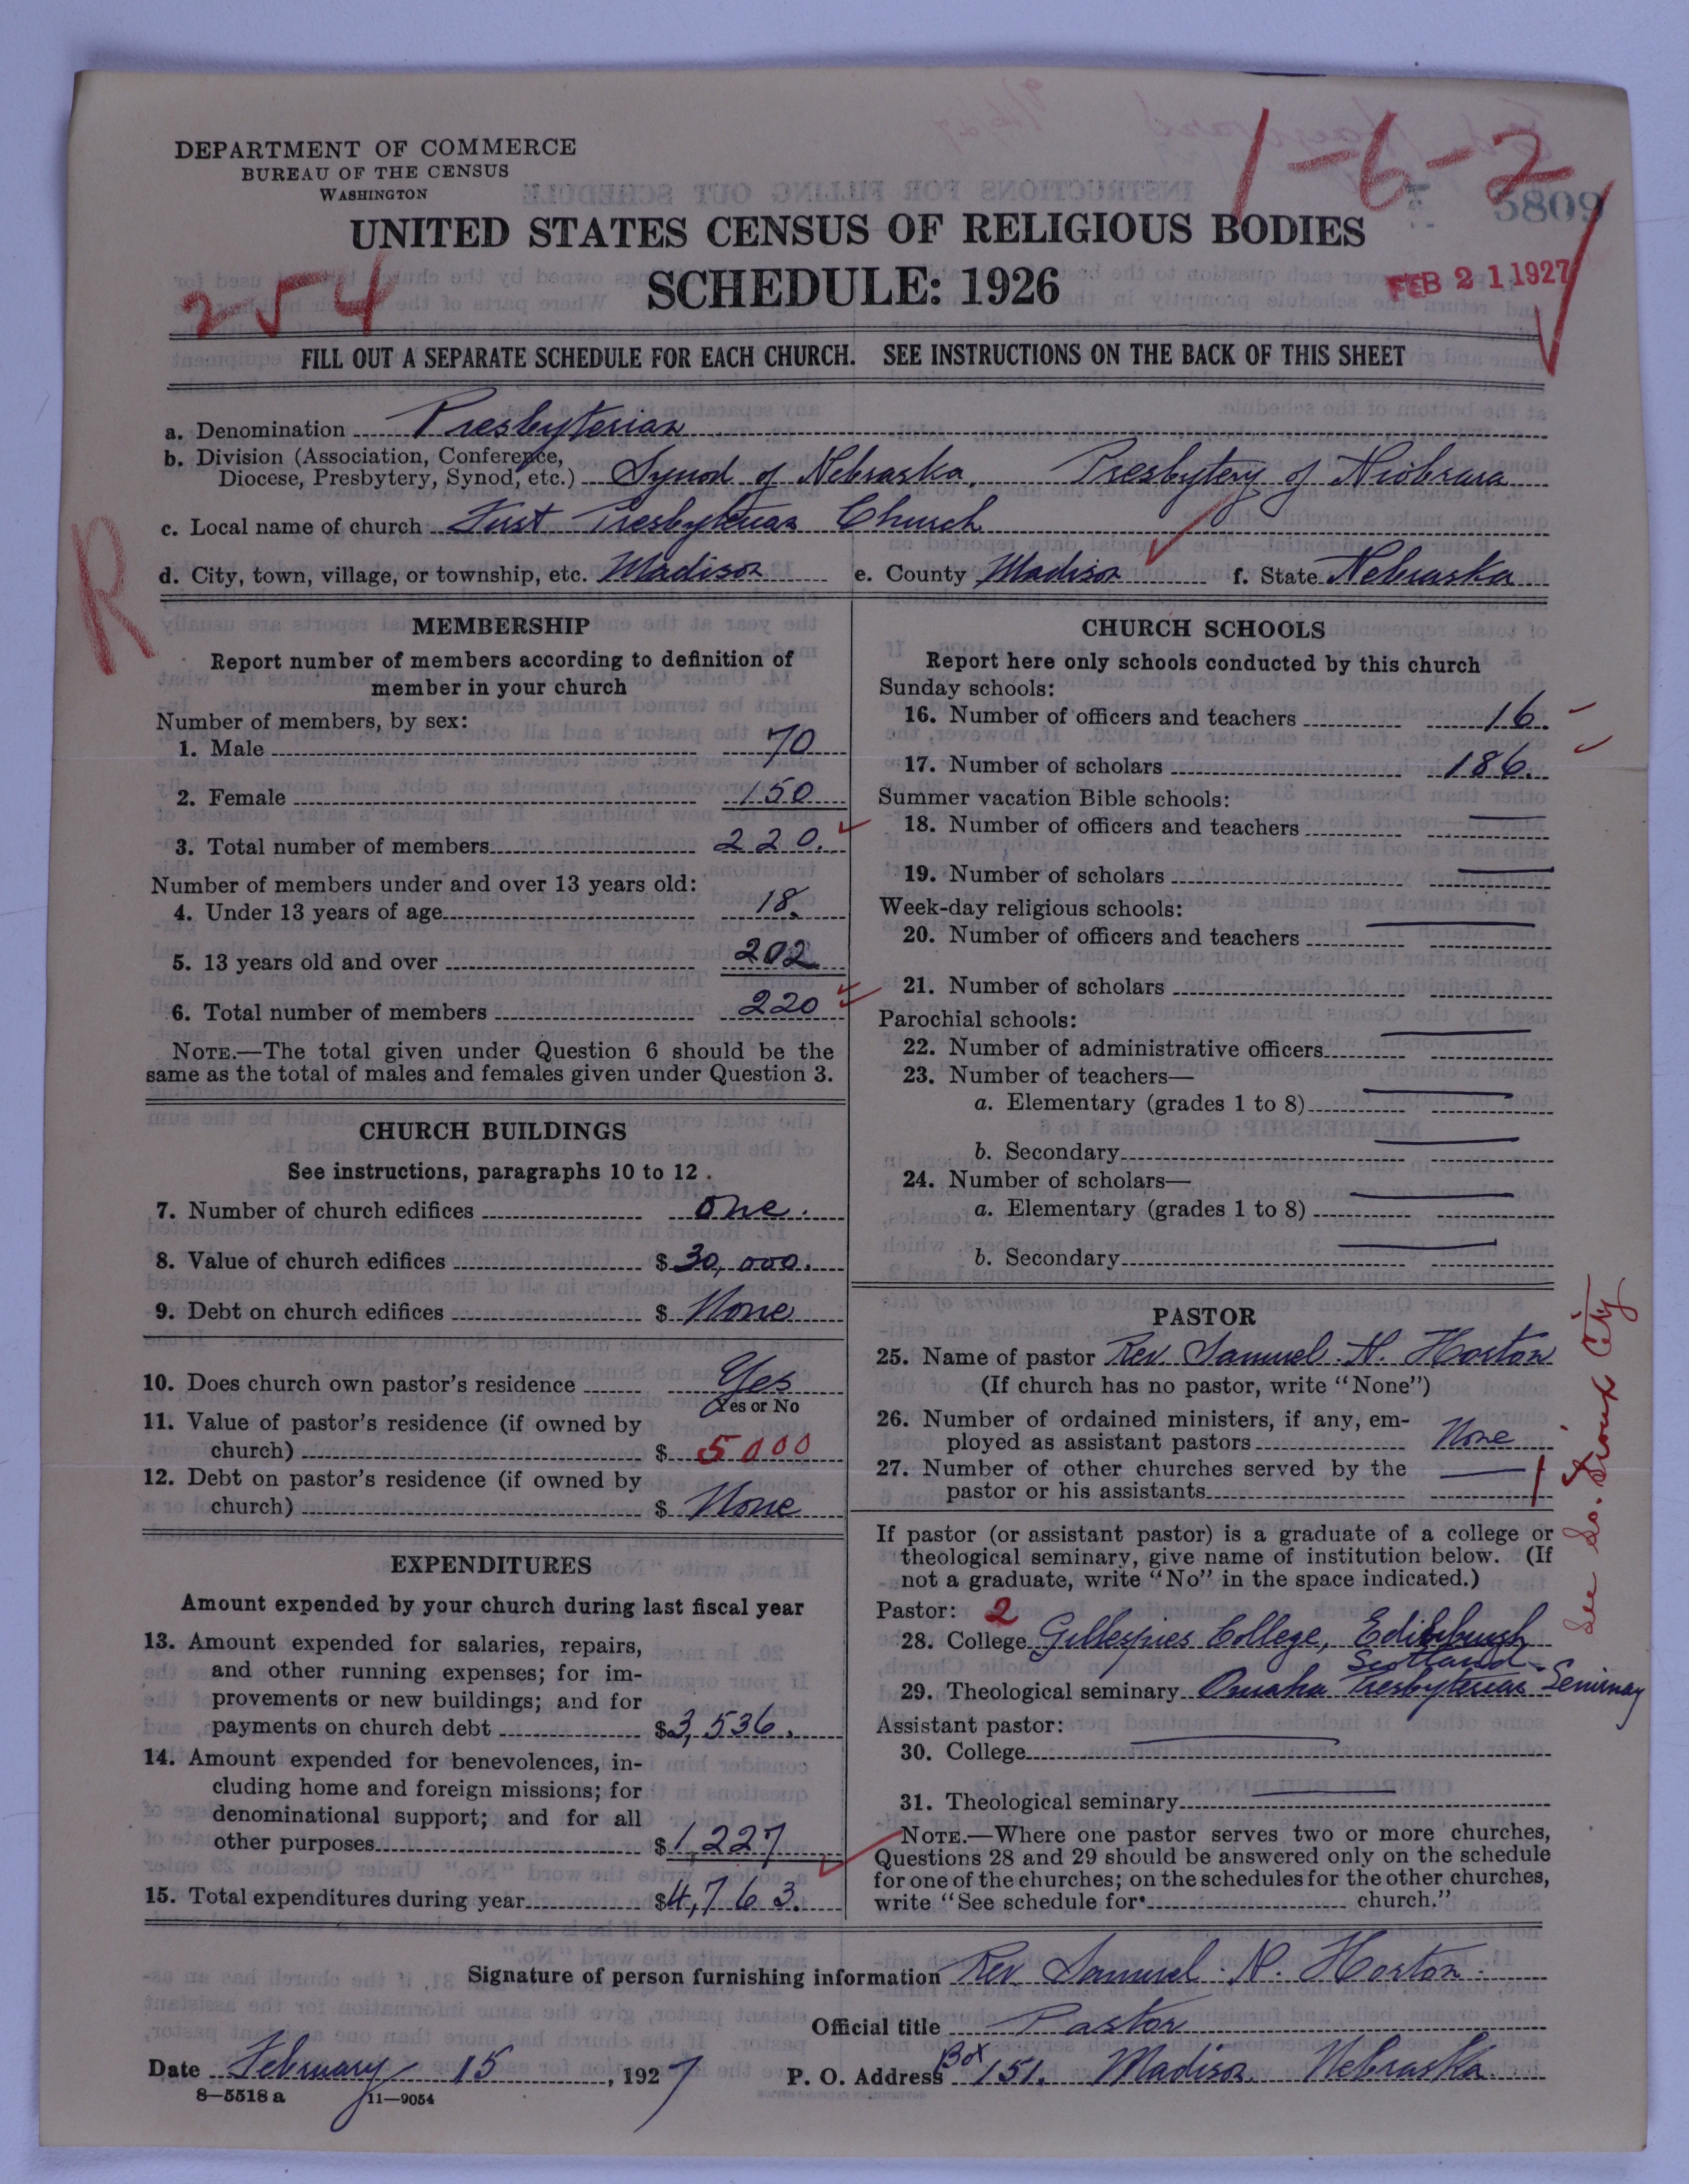 DEPARTMENT OF COMMERCE
BUREAU OF THE CENSUS
WASHINGTON
1-6-2
5809
UNITED STATES CENSUS OF RELIGIOUS BODIES
SCHEDULE: 1926
254
FEB 21 1927
FILL OUT A SEPARATE SCHEDULE FOR EACH CHURCH. SEE INSTRUCTIONS ON THE BACK OF THIS SHEET
a. Denomination Presbyterian
b. Division (Association, Conference,
Diocese, Presbytery, Synod, etc.) Synod of Nebraska, Presbytery of Niobrara
c. Local name of church First Presbyterian Church
d. City, town, village, or township, etc. Madison e. County Madison f. State Nebraska
R
MEMBERSHIP
Report number of members according to definition of
member in your church
Number of members, by sex:
1. Male 70
2. Female 150
3. Total number of members 220.
Number of members under and over 13 years old:
4. Under 13 years of age 18.
5. 13 years old and over 202
6. Total number of members 220
NOTE.—The total given under Question 6 should be the
same as the total of males and females given under Question 3.
CHURCH BUILDINGS
See instructions, paragraphs 10 to 12.
7. Number of church edifices One.
8. Value of church edifices $ 30,000.
9. Debt on church edifices $ None
10. Does church own pastor's residence Yes
Yes or No
11. Value of pastor's residence (if owned by
church) $ 5000
12. Debt on pastor's residence (if owned by
church) $ None
EXPENDITURES
Amount expended by your church during last fiscal year
13. Amount expended for salaries, repairs,
and other running expenses; for im-
provements or new buildings; and for
payments on church debt $3,536.
14. Amount expended for benevolences, in-
cluding home and foreign missions; for
denominational support; and for all
other purposes $1,227
15. Total expenditures during year $4,763.
CHURCH SCHOOLS
Report here only schools conducted by this church
Sunday schools:
16. Number of officers and teachers 16.
17. Number of scholars 186.
Summer vacation Bible schools:
18. Number of officers and teachers
19. Number of scholars
Week-day religious schools:
20. Number of officers and teachers
21. Number of scholars
Parochial schools:
22. Number of administrative officers
23. Number of teachers—
a. Elementary (grades 1 to 8)
b. Secondary
24. Number of scholars—
a. Elementary (grades 1 to 8)
b. Secondary
PASTOR
25. Name of pastor Rev. Samuel. N. Horton
(If church has no pastor, write "None")
26. Number of ordained ministers, if any, em-
ployed as assistant pastors None
27. Number of other churches served by the
pastor or his assistants 1
See So. Sioux City
If pastor (or assistant pastor) is a graduate of a college or
theological seminary, give name of institution below. (If
not a graduate, write "No" in the space indicated.)
Pastor: 2
28. College Gillespies College, Edinburgh
Scotland.
29. Theological seminary Omaha Presbyterian Seminary
Assistant pastor:
30. College
31. Theological seminary
NOTE.—Where one pastor serves two or more churches,
Questions 28 and 29 should be answered only on the schedule
for one of the churches; on the schedules for the other churches,
write "See schedule for church."
Signature of person furnishing information Rev. Samuel. N. Horton.
Official title Pastor
Date February 15, 1927 P. O. Address Box 151. Madison Nebraska.
8—5518 a 11—9054